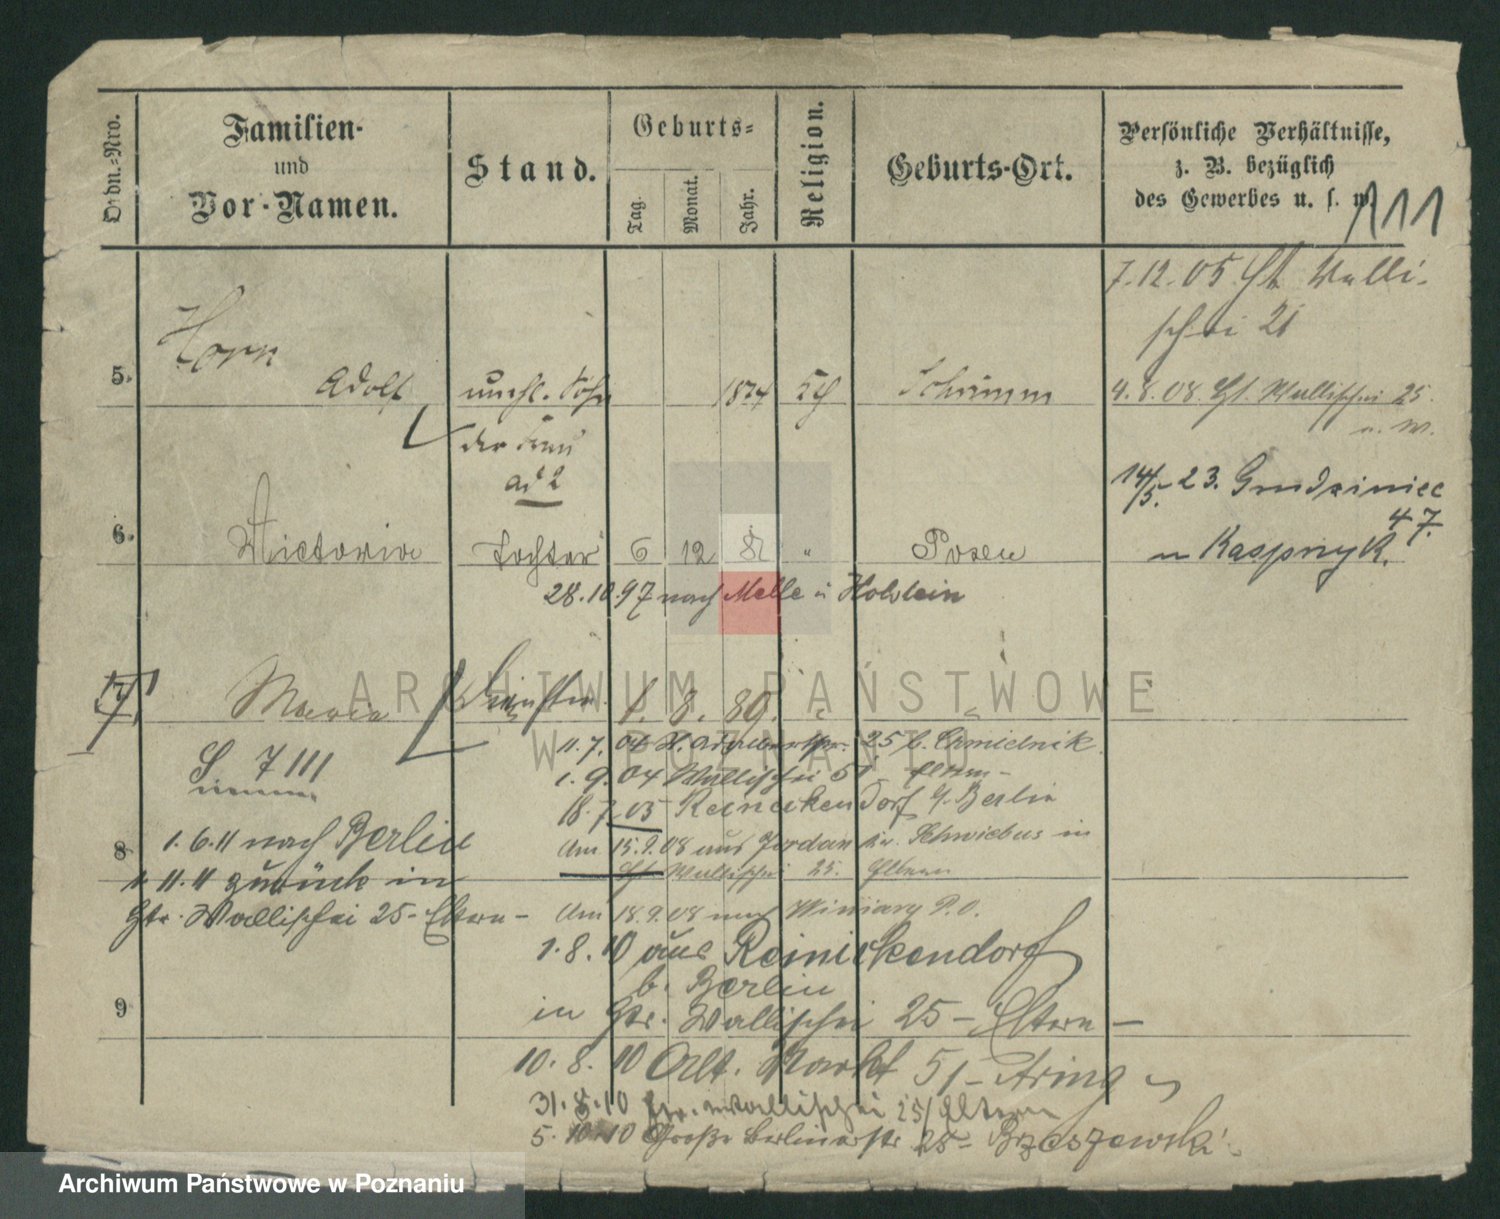 Ordn.-Nro.
Familien-
und
Vor-Namen.
Stand.
Geburts-
Tag.
Monat.
Jahr.
Religion.
Geburts-Ort.
Persönliche Verhältnisse,
z. B. bezüglich
des Gewerbes u. s. w.
111
7.12.05 Walli-
schei 21
5.
Horn
Adolf
unehl. Sohn
1874
Schrimm
4.8.08. Wallischei 25.
der Frau
ad 2
14/5. 23. Grudziniec
47.
6.
Victoria
Tochter
6
12
"
Posen
Kasprzyk.
28.10.97 nach Melle i Holstein
7
Maria
1. 8. 89.
S. 7111
11.7.04 25 b. Chmielnik
1.9.04 Wallischei 51 Eltern -
18.7.05 Reinickendorf b. Berlin
8
1.6.11 nach Berlin
Am 15.9.08 aus Jordan Schwiebus in
11.11 zurück in
Wallischei 25. Eltern
Gtr. Wallischei 25 - Eltern -
Am 18.9.08 nach Winiary P.O.
1.8.10 aus Reinickendorf
b. Berlin
9
in Gtr. Wallischei 25 - Eltern -
10.8.10 Alt. Markt 51 -
31.8.10 Gtr. Wallischei 25/ Eltern
5.10.10 Große Berlinerstr 25 - Brzeszewski
ARCHIWUM PAŃSTWOWE
W POZNANIU
Archiwum Państwowe w Poznaniu